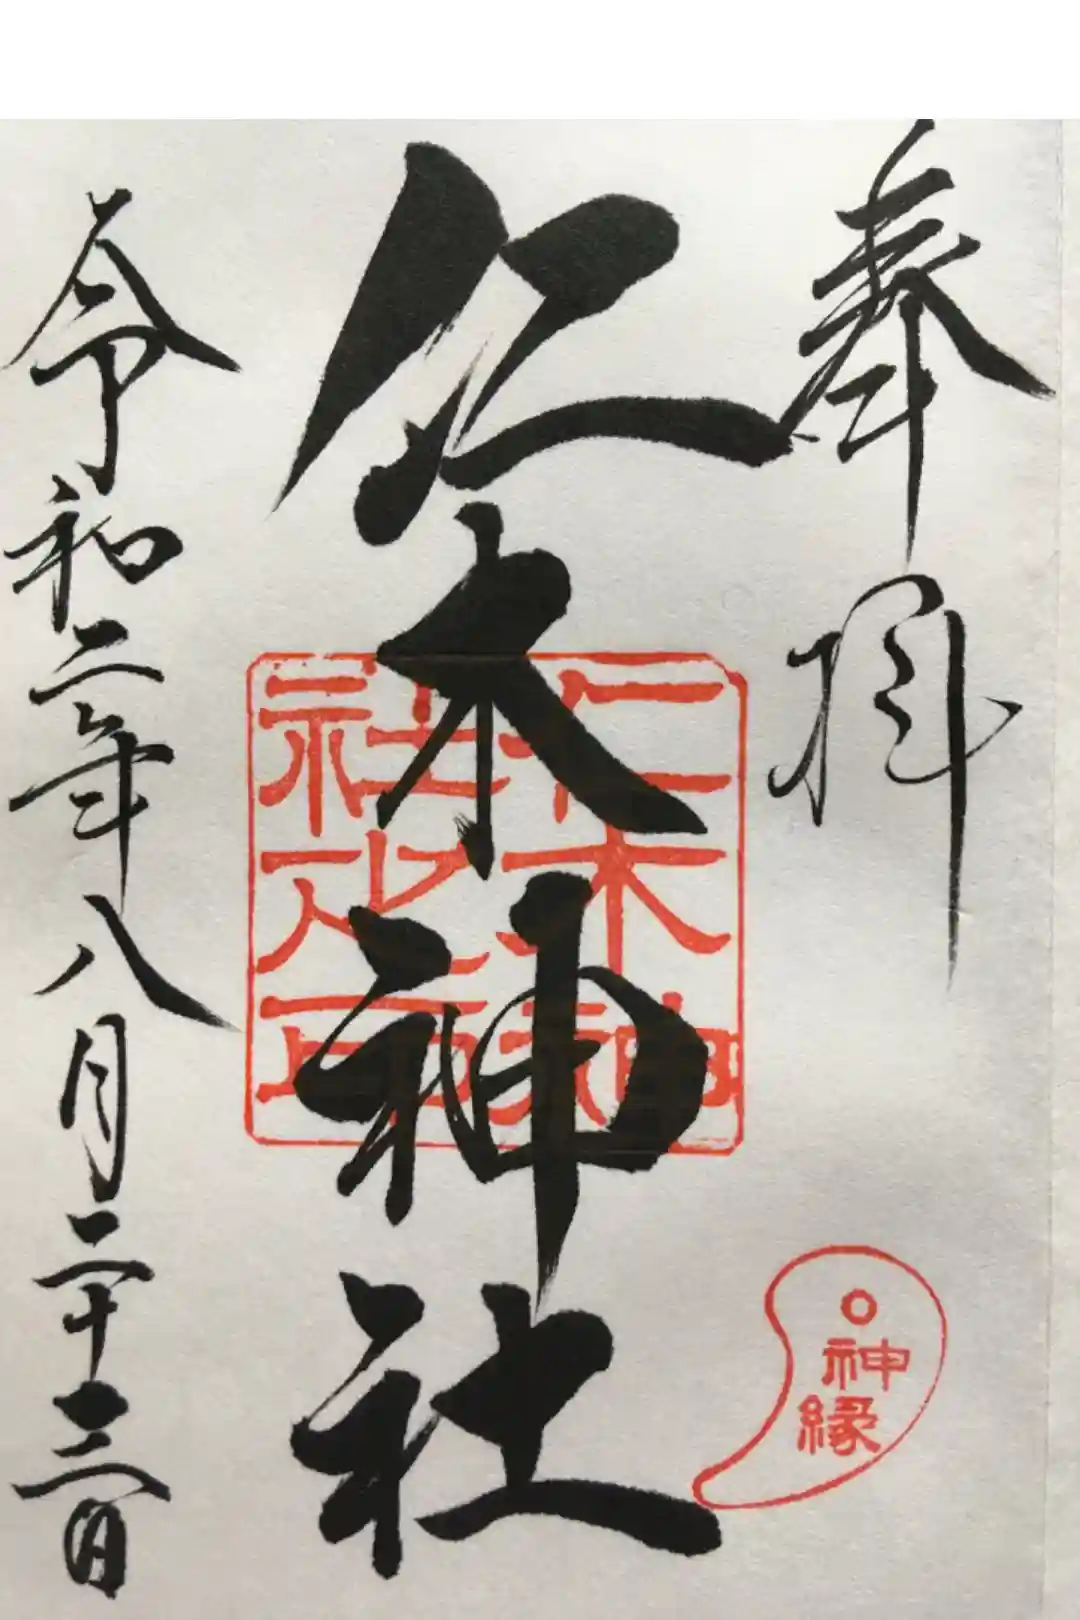 奉拝
仁木神社
仁木神
社之印
神
縁
令和二年八月二十三日